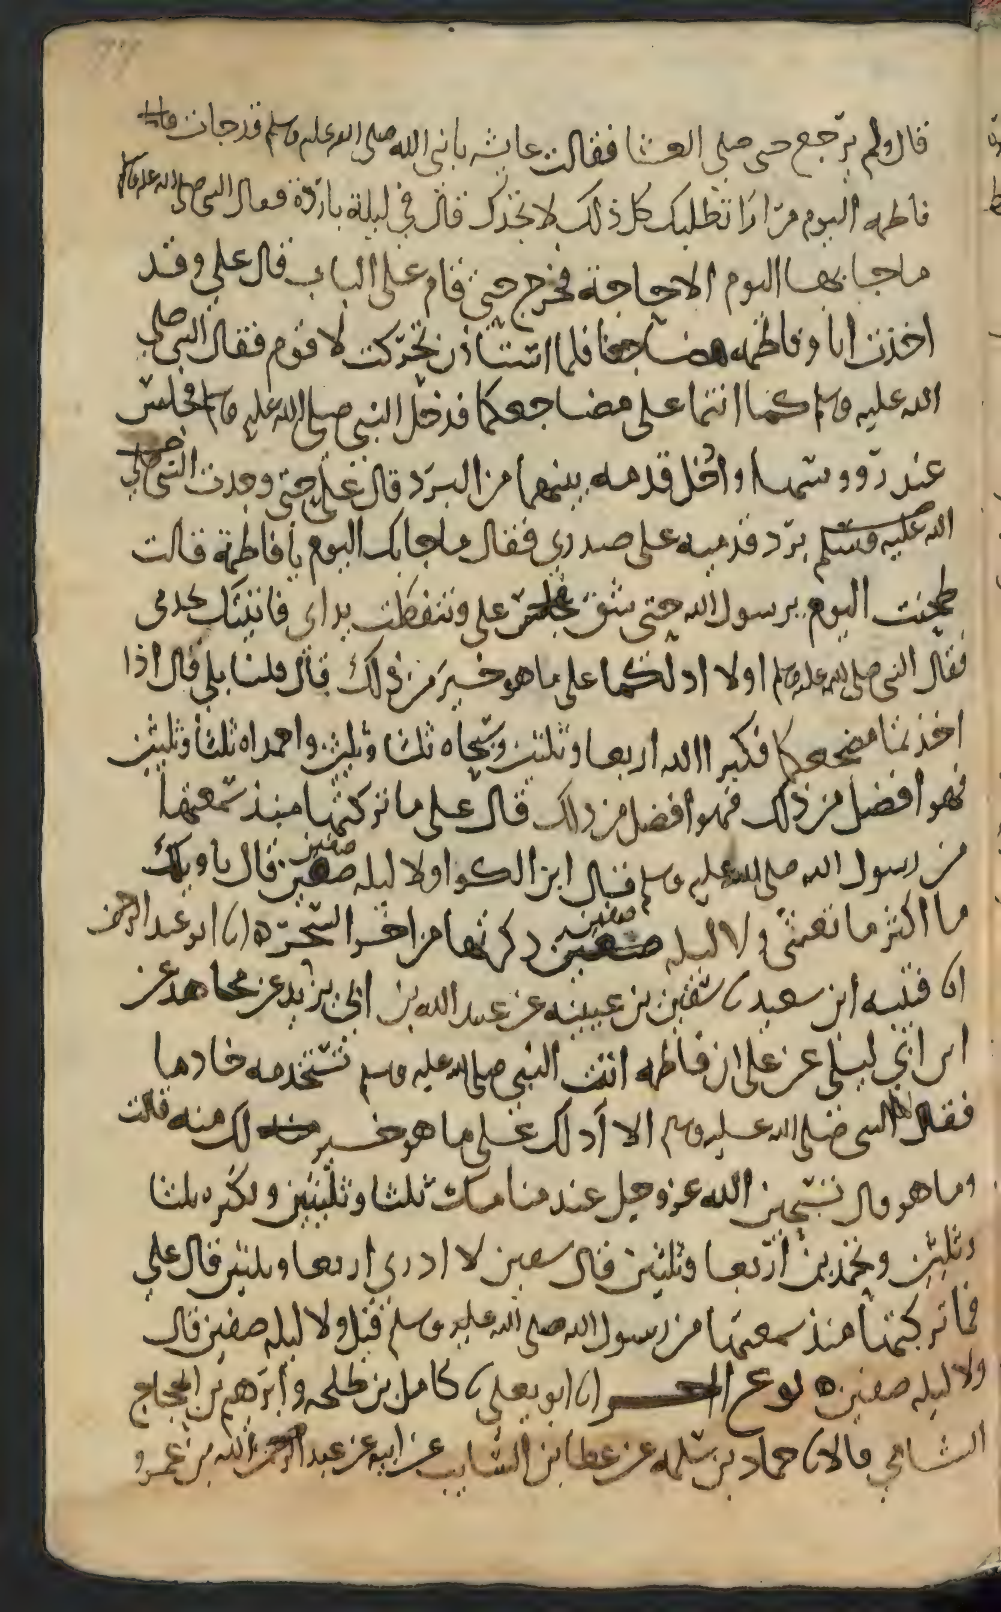 قال ولم يرجع حتى صلى العشا فقالت عايشه يا نبي الله صلى الله عليه وسلم قد جات
فاطمه اليوم مرارا تطلبك كل ذلك لا تجدك قال في ليلة باردة فقال النبي صلى الله عليه وسلم
ما جا بها اليوم الا حاجة فخرج حتى قام على الباب قال علي وقد
اخذت انا وفاطمه مضاجعنا فلما استاذن تحركت لاقوم فقال النبي صلى
الله عليه وسلم كما انتما على مضاجعكما فدخل النبي صلى الله عليه وسلم فجلس
عند رووسهما وادخل قدمه بينهما من البرد قال علي حتى وجدت النبي صلى
الله عليه وسلم برد قدميه على صدري فقال ما جا بك اليوم يا فاطمة قالت
طحنت اليوم يرسول الله حتى شق علي وتنفطت يداي فاتيتك
فقال النبي صلى الله عليه وسلم اولا ادلكما على ما هو خير من ذلك قال قلنا بلى قال اذا
اخذتما مضجعكما فكبرا الله اربعا وثلثين وسبحاه ثلثا وثلثين واحمداه ثلثا وثلثين
فهو افضل من ذلك فهو افضل من ذلك قال علي ما تركتها منذ سمعتها
من رسول الله صلى الله عليه وسلم فقال ابن الكوا ولا ليله صفين صفين قال يا ويلك
ما اكثر ما تعنتني ولا ليله صفين صفين ذكرتها من اخر السحر ه انا ابو عبد الرحمن
انا قتيبه ابن سعيد نا سفين بن عيينه عن عبيد الله بن ابي يزيد عن مجاهد عن
ابن ابي ليلى عن علي ان فاطمه اتت النبي صلى الله عليه وسلم تستخدمه خادما
فقال لها النبي صلى الله عليه وسلم الا ادلك على ما هو خير لك منه قالت
وما هو قال تسبحين الله عز وجل عند منامك ثلثا وثلثين وتكبره ثلثا
وثلثين وتحمدين اربعا وثلثين قال سفين لا ادري اربعا وثلثين قال علي
فما تركتها منذ سمعتها من رسول الله صلى الله عليه وسلم قيل ولا ليله صفين قال
ولا ليله صفين ه نوع اخر انا ابو يعلى نا كامل بن طلحه وابرهيم بن الحجاج
الشامي قالا نا حماد بن سلمه عن عطا بن السايب عن ابيه عن عبد الله بن عمرو